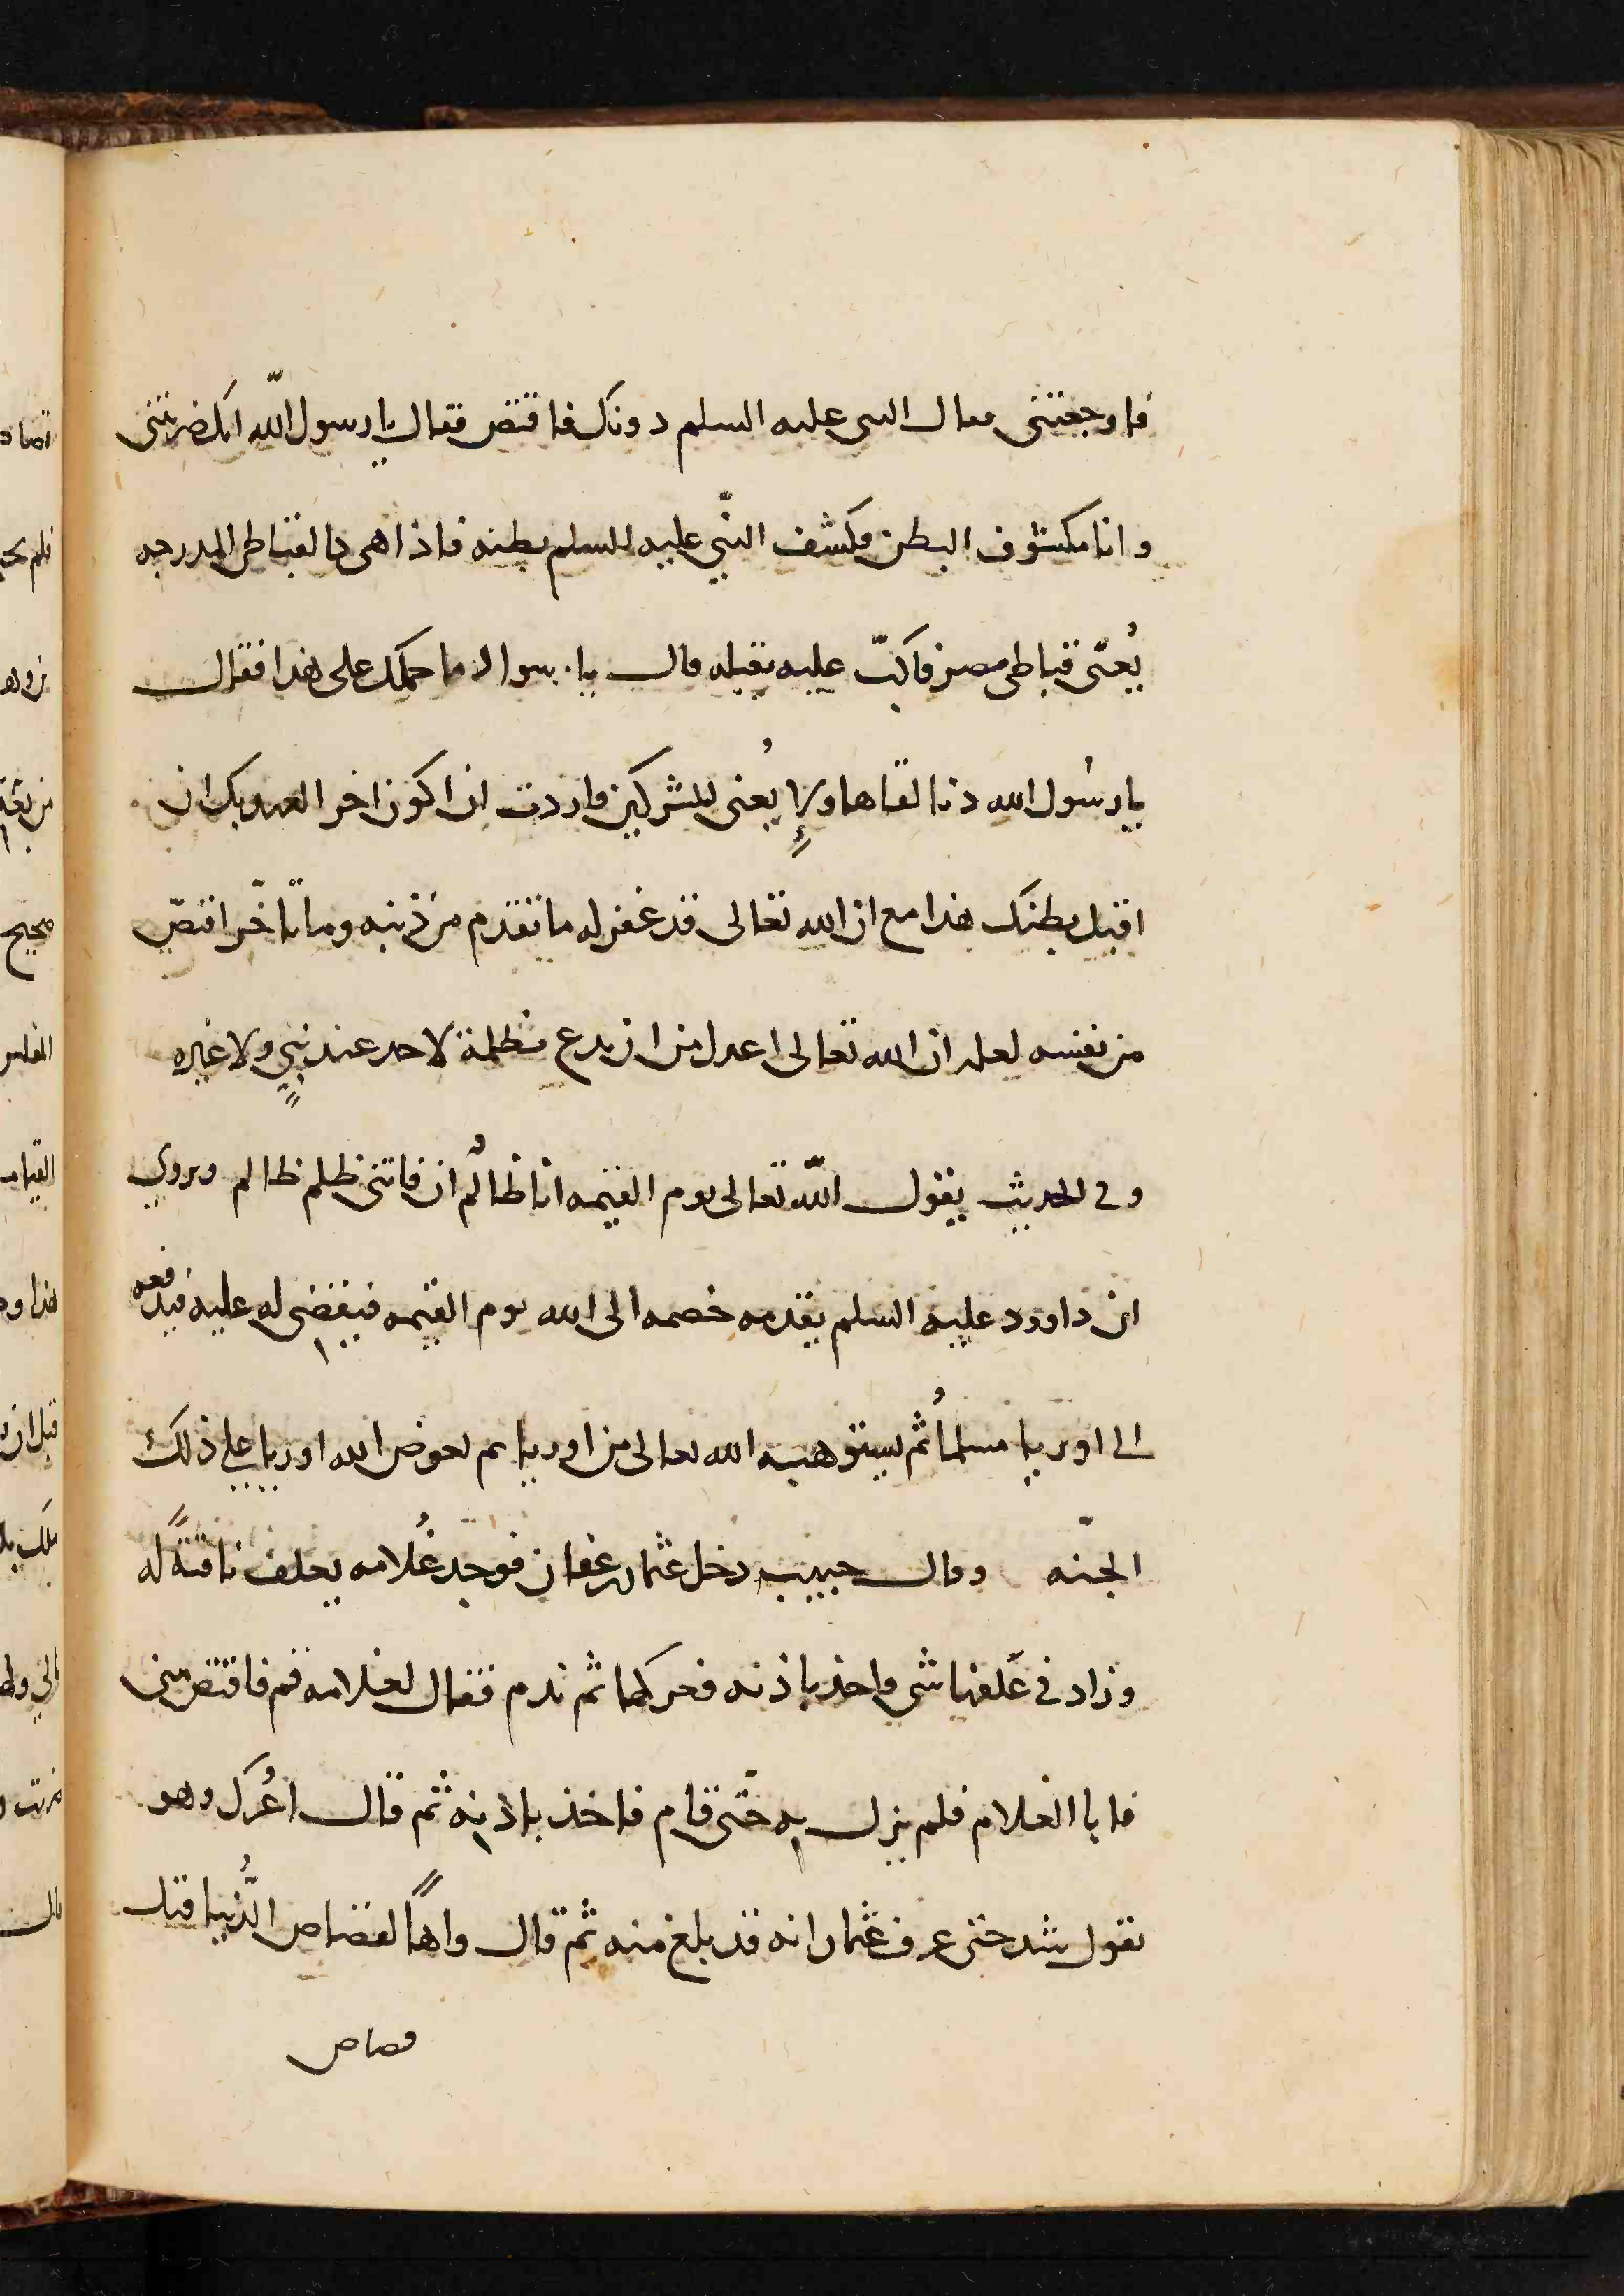 فاوجعتنى فقال النبى عليه السلم دونك فاقتص فقال يا رسول اللّه انك ضربتنى
وانا مكشوف البطن فكشف النّبي عليه السلم بطنه فاذا هى كالقباطى المدرجه
يُعنى قباطى مصر فاكبّ عليه يقبله قال يا سواد ما حملك على هذا فقال
يا رسُول الله دنا لقاها ولاءِ يُعنى المشركين فاردت ان اكون اخر العهد بك ان
اقبل بطنك هذا مع ان الله تعالى قد غفر له ما تقدم من ذنبه وما تاخّر اقتصّ
من نفسه لعلمه ان الله تعالى اعدل من ان يدع مظلمة لاحد عند نبيٍ ولا غيره
وفى الحديث يقول اللّه تعالى يوم القيمه انا ظالمُ ان فاتنى ظلم ظالم ويروى
ان داوود عليه السلم يقدمه خصمه الى الله يوم القيمه فيقضى له عليه فيدفعه
الى اوريا مسلماُ ثم يستوهبه الله تعالى من اوريا ثم يعوض الله اوريا على ذلك
الجنّه وقال حبيب دخل عثمان بن عفان فوجد غُلامه يعلف ناقةً له
وزاد فى عَلفها شى فاخذ باذنه فعركها ثم ندم فقال لغلامه قم فاقتص منى
فابا الغلام فلم يزل به حتّى قام فاخذ باذنه ثم قال اعُرك وهو
يقول شد حتى عرف عثمان انه قد بلغ منه ثم قال واهاً لقصاص الدُّنيا قبل
قصاص